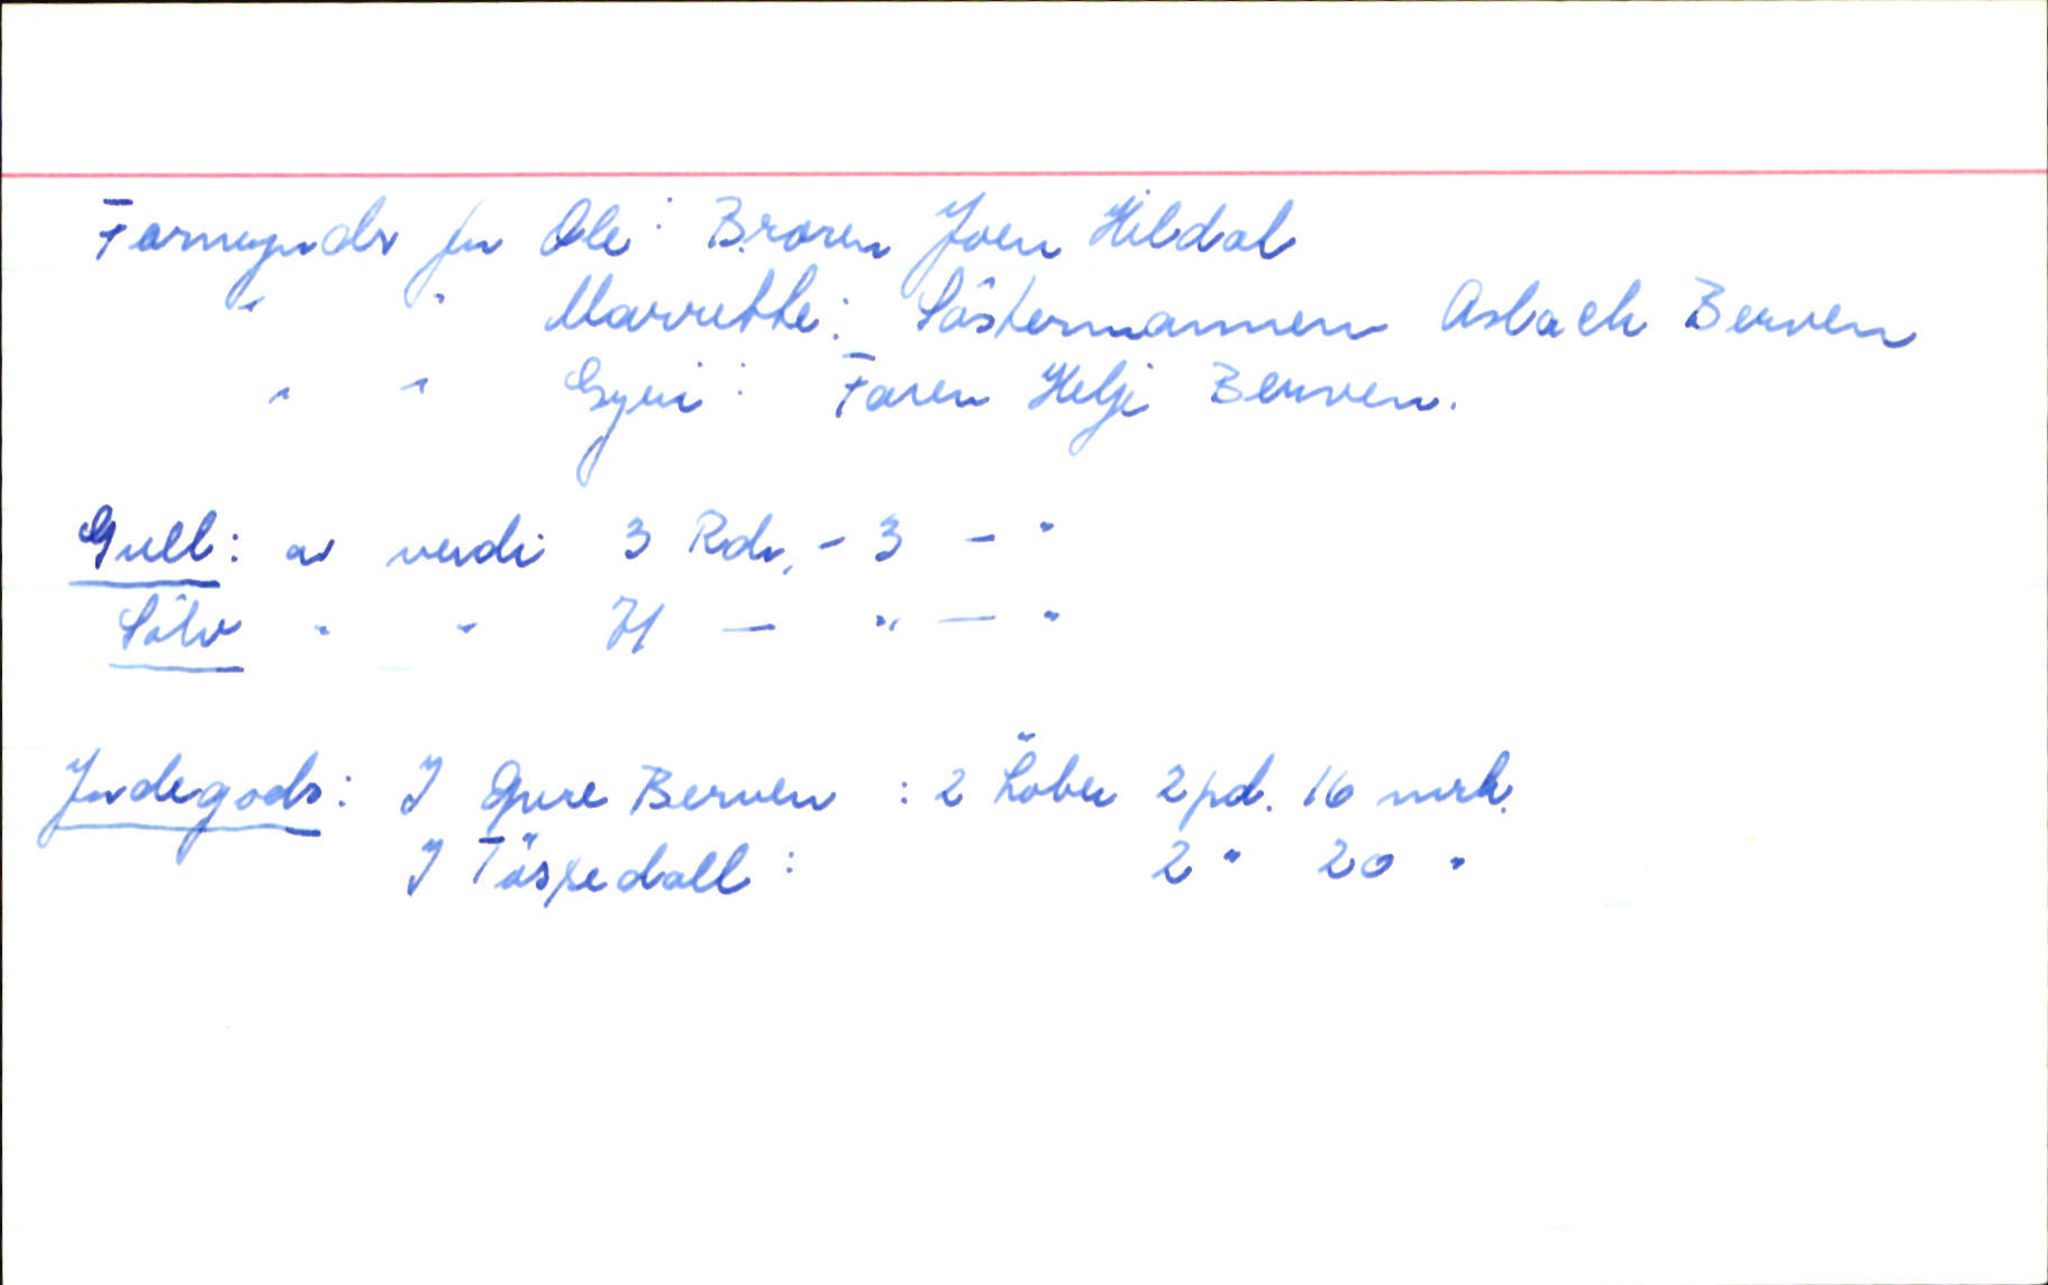 Formyndr for Ole: Broren Joen Hildal
" " Marrethe: Söstermannen Aslach Berven
" " Gyri: Faren Helje Berven.
Gull: av verdi 3 Rdr. - 3 - "
Sölv " " 71 — " — "
Jordegods: I Øvre Berven : 2 Löber 2 pd. 16 mrk.
I Tössedall: 2 " 20 "